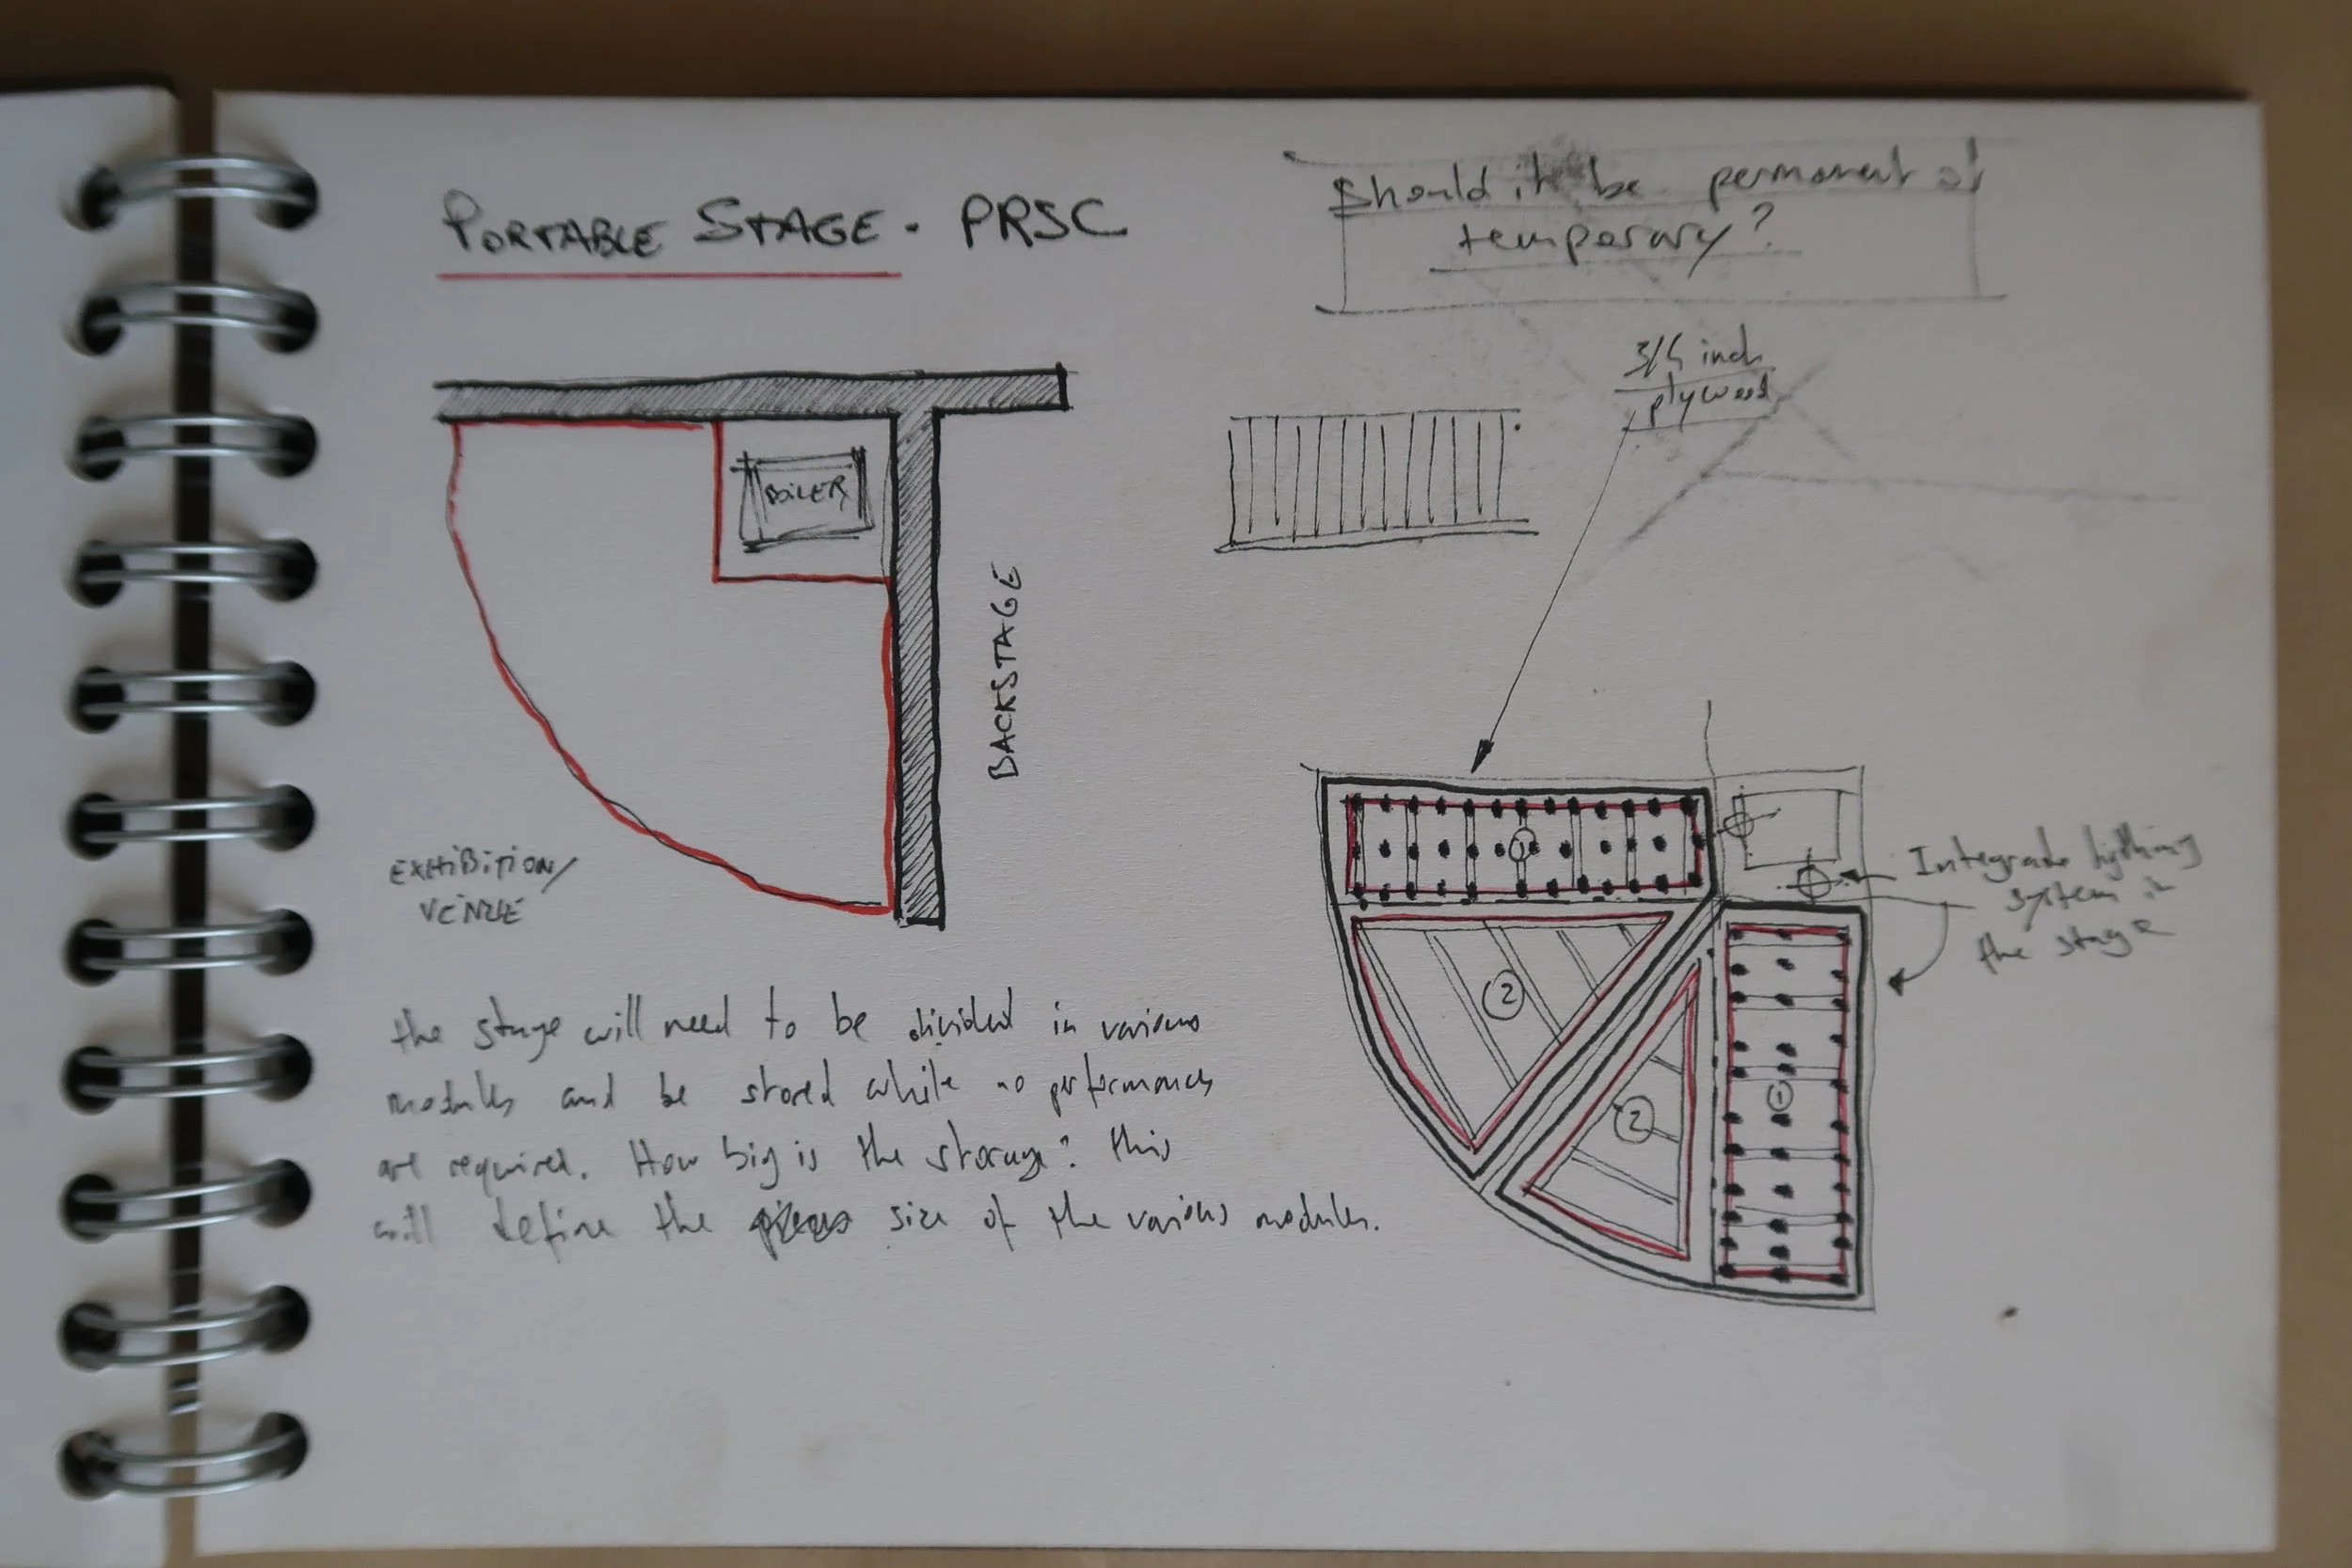 PORTABLE STAGE - PRSC
Should it be permanent or
temporary?
3/4 inch
plywood
BOILER
BACKSTAGE
EXHIBITION/
VENUE
1
2
2
1
Integrade lighting
system in
the stage
the stage will need to be divided in various
modules and be stored while no performances
are required. How big is the storage? this
will define the size of the various modules.